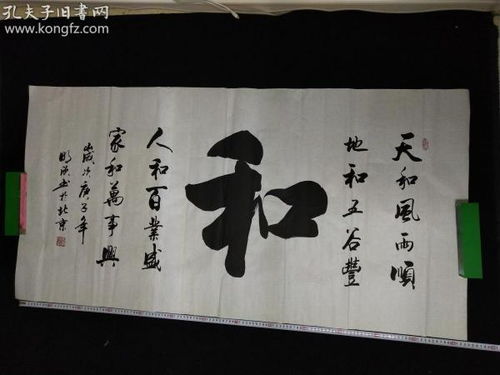 孔夫子旧书网
www.kongfz.com
天和風雨順
地和五谷豐
和
人和百業盛
家和萬事興
歲次庚子年
書於北京